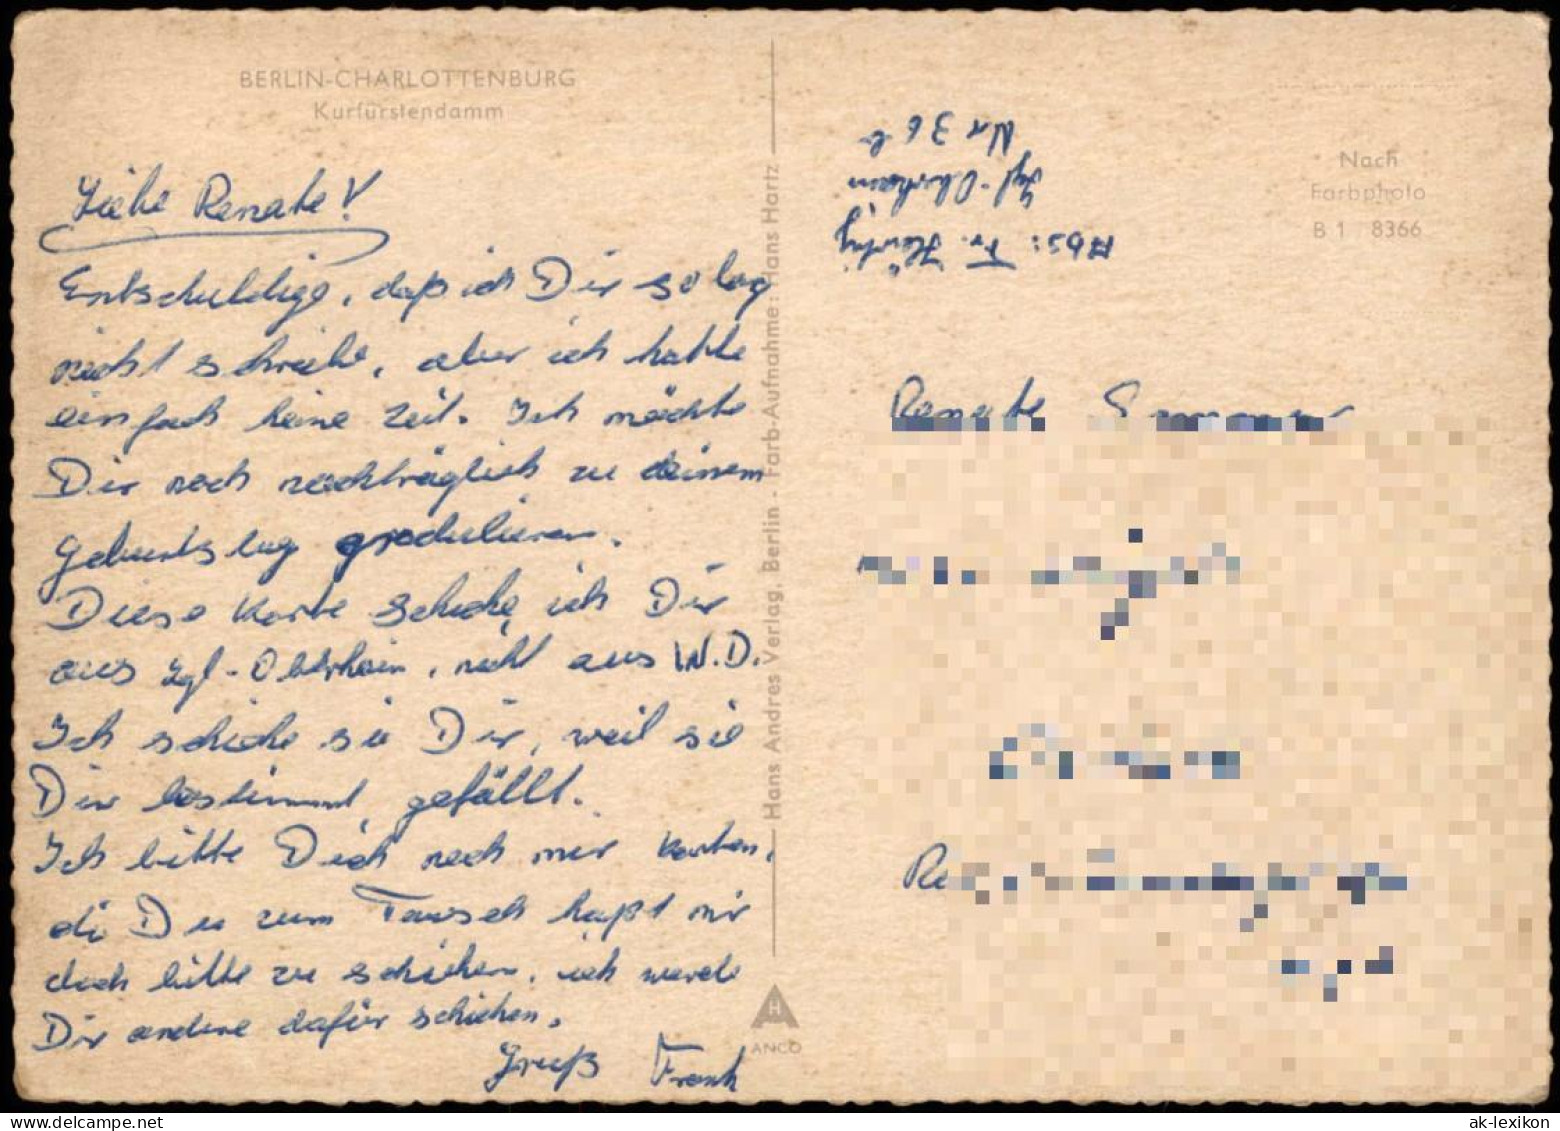 BERLIN-CHARLOTTENBURG
Kurfürstendamm
Liebe Renate!
Entschuldige, daß ich Dir so lag
nicht schreibe, aber ich hatte
einfach keine Zeit. Ich möchte
Dir noch nachträglich zu deinem
Geburtstag gradulieren.
Diese Karte schicke ich Dir
aus Zgl-Oberhain, nicht aus W.D.
Ich schicke sie Dir, weil sie
Dir bestimmt gefällt.
Ich bitte Dich noch mir Karten,
di Du zum Tausch hast mir
doch bitte zu schicken, ich werde
Dir andere dafür schicken.
Gruß Frank
Hans Andres Verlag, Berlin - Farb-Aufnahme: Hans Hartz
H
ANCO
Abs: Fr.
Zgl-Oberhain
Nr 36 b
Nach
Farbphoto
B 1 8366
Renate
ak-lexikon.de